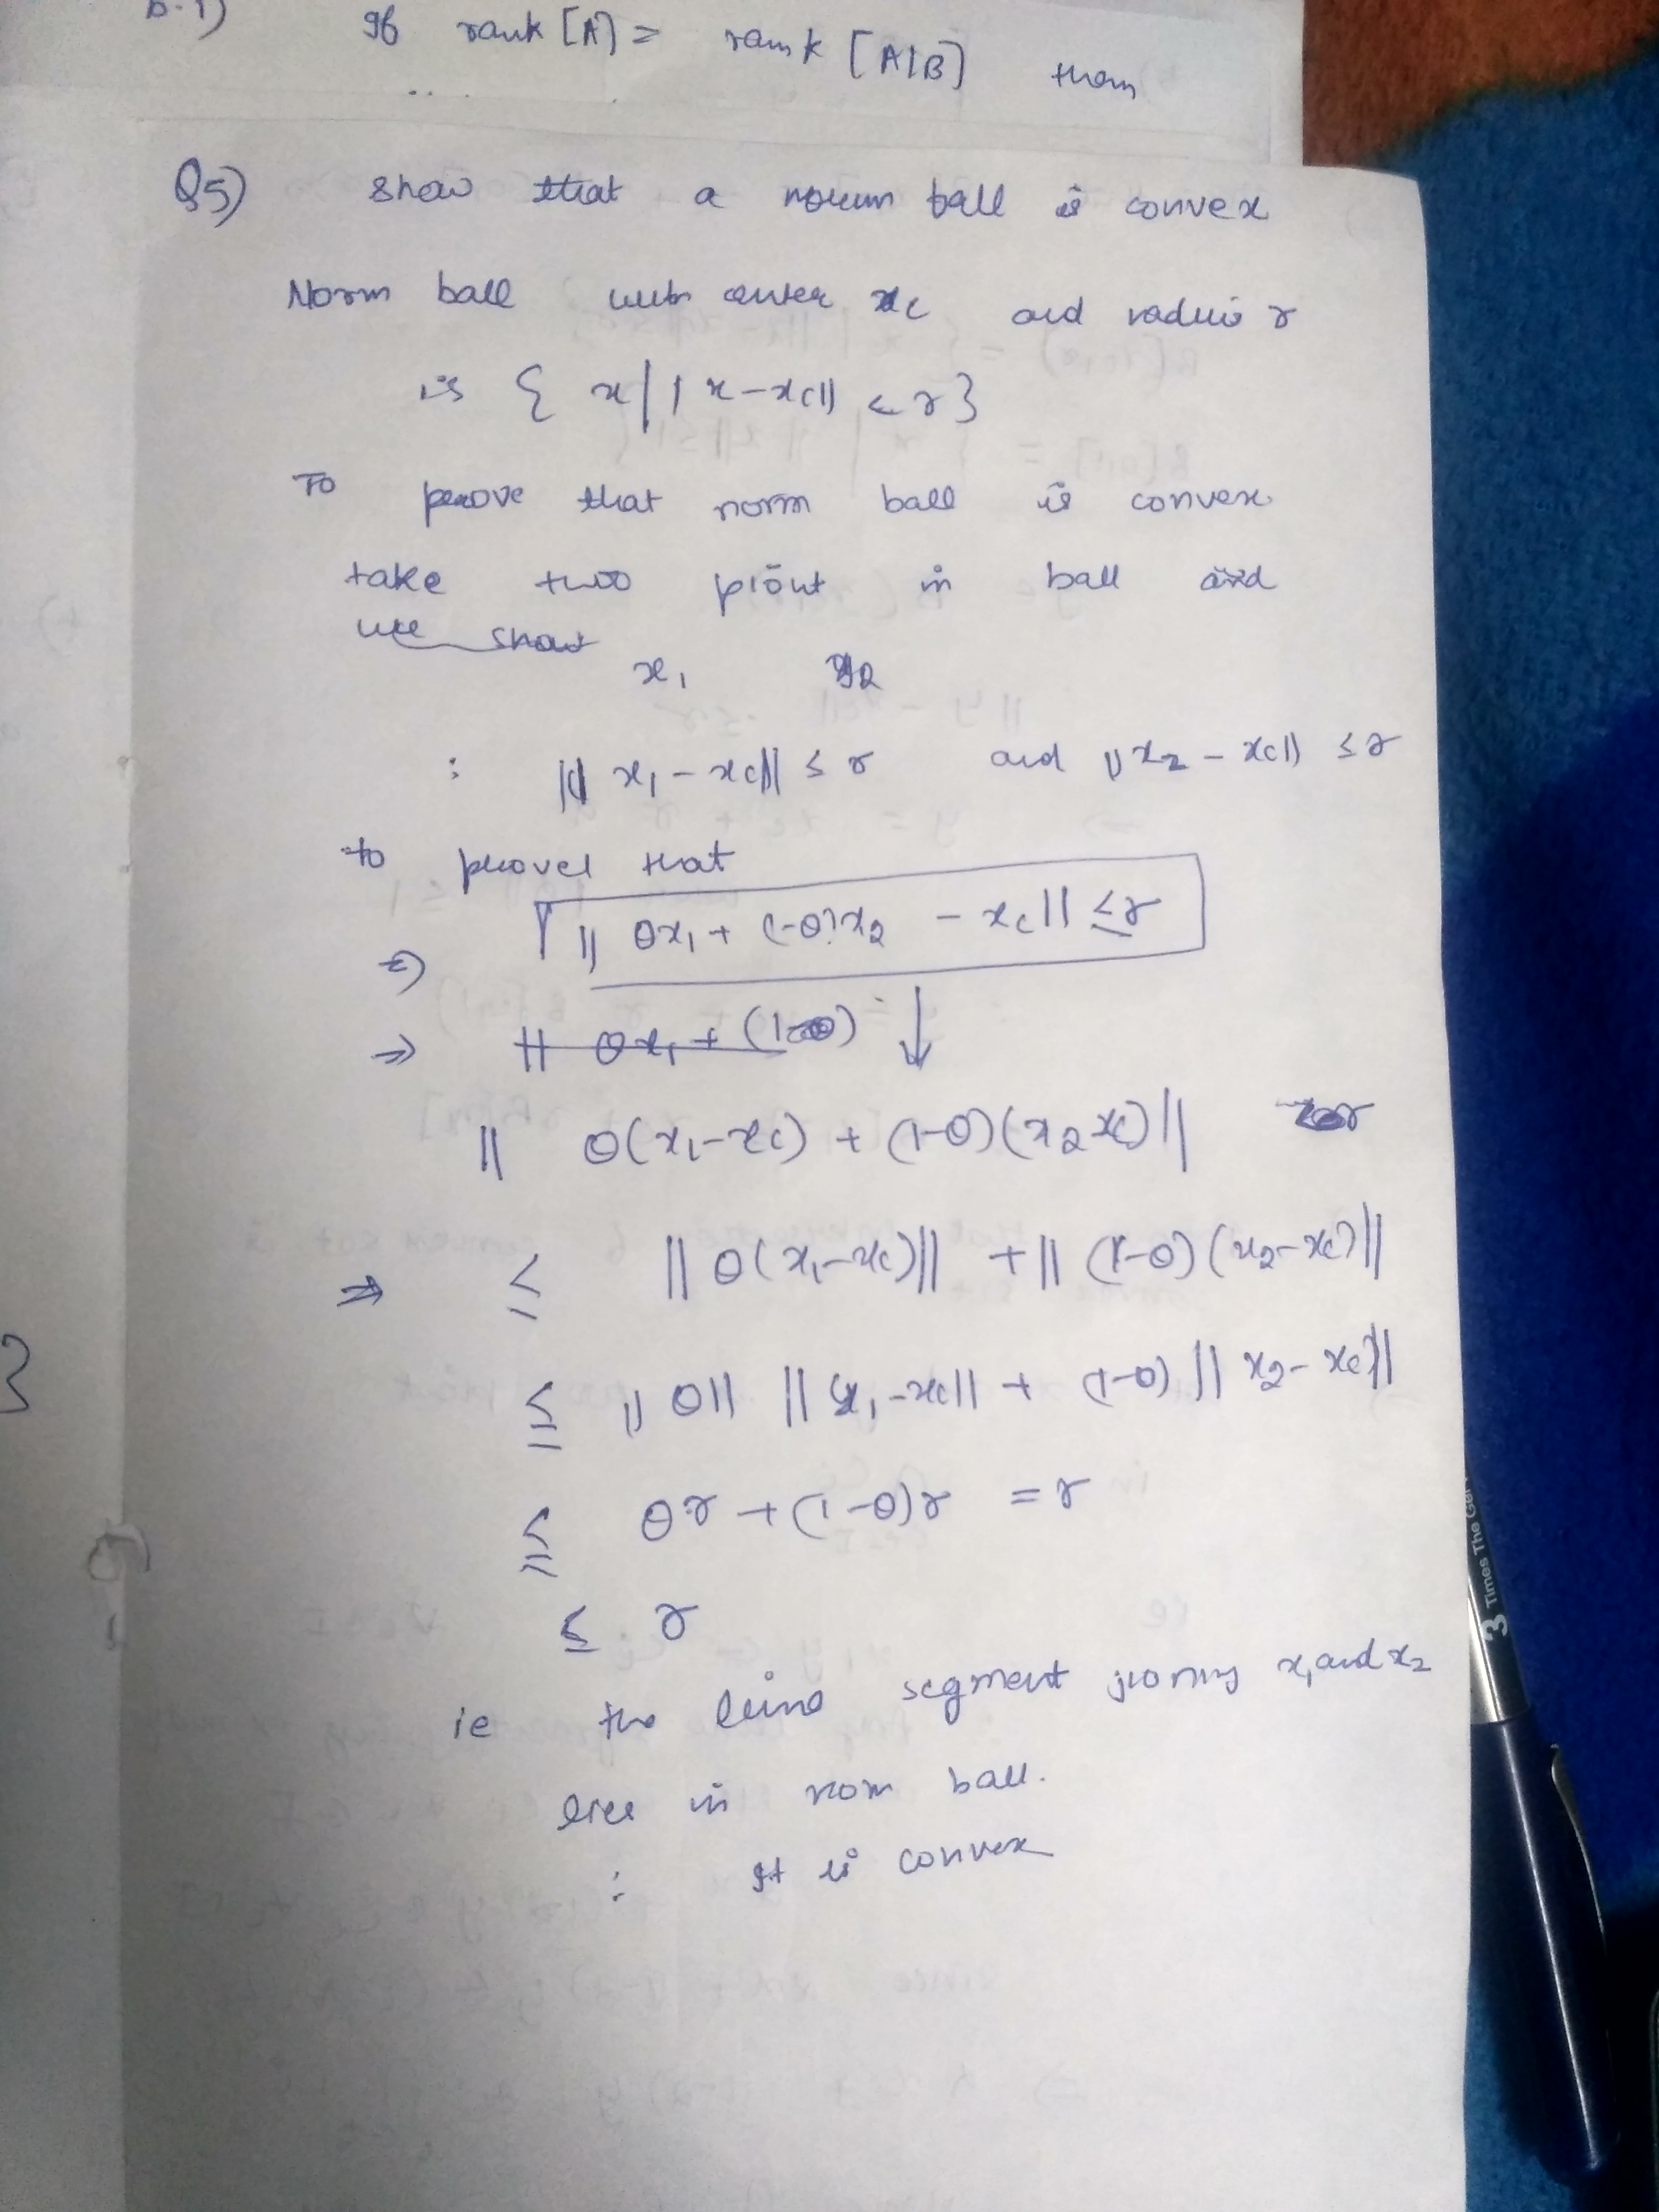 If rank [A] = rank [A|B] then
Q5) show that a norm ball is convex
Norm ball with center xc and radius r
is { x | | x - xc || ≤ r }
To prove that norm ball is convex
take two piont in ball and
we show
x1 x2
: || x1 - xc || ≤ r and || x2 - xc || ≤ r
to proved that
⇒ || θx1 + (-θ)x2 - xc || ≤ r
⇒ || θx1 + (1-θ) ↓
|| θ(x1-xc) + (1-θ)(x2 xc) ||
⇒ ≤ || θ(x1-xc) || + || (1-θ) (x2-xc) ||
≤ || θ || || x1-xc || + (1-θ) || x2 - xc ||
≤ θr + (1-θ)r = r
≤ r
ie the line segment jioning x1 and x2
lies in nom ball.
: It is convex
3 Times The Gel